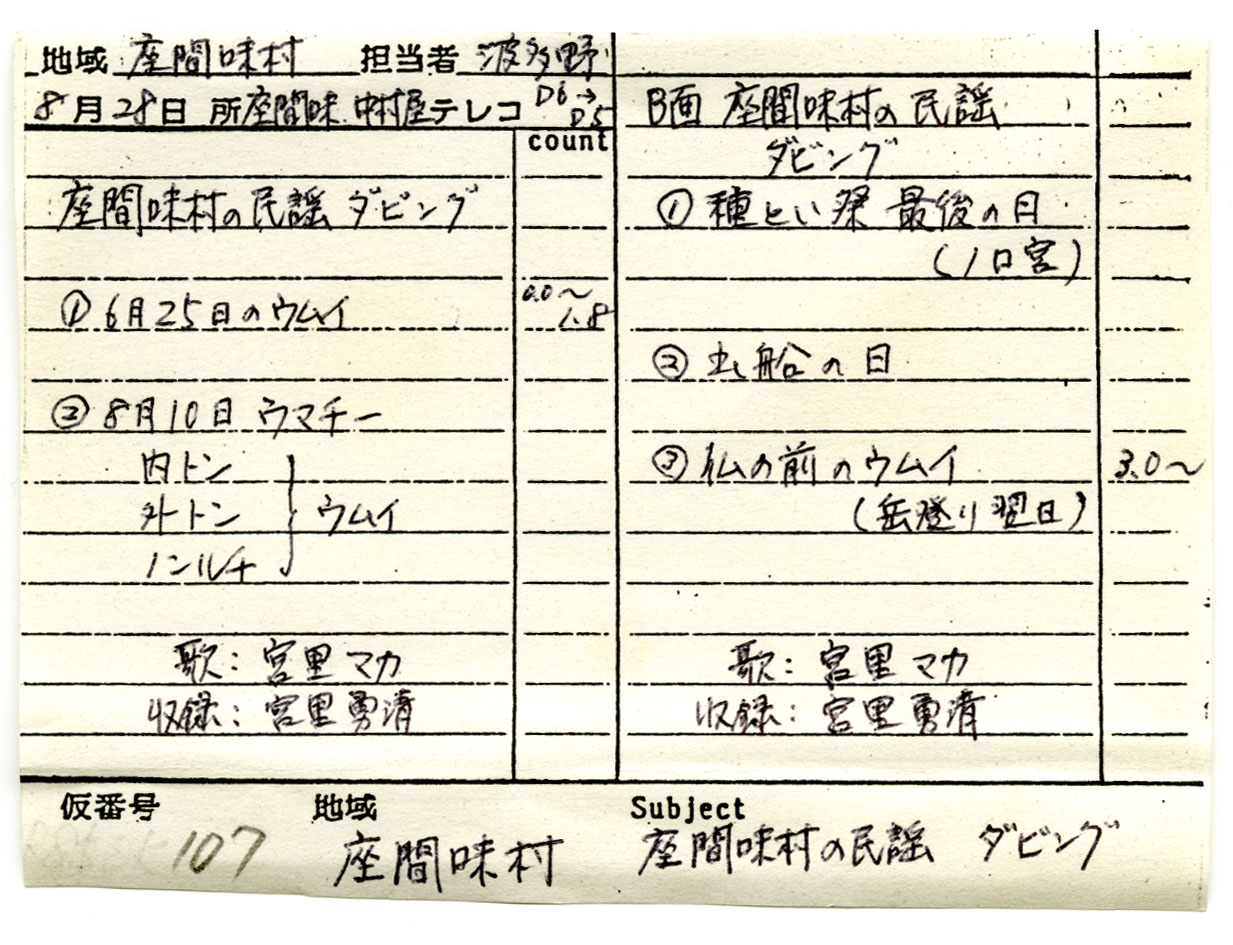 地域 座間味村 担当者 波多野
8月28日 所座間味 中村屋テレコ D6→D5
count
座間味村の民謡 ダビング
① 6月25日のウムイ 0.0〜1.8
② 8月10日 ウマチー
内トン
外トン
ノンルチ
ウムイ
歌: 宮里マカ
収録: 宮里勇清
B面 座間味村の民謡
ダビング
① 種とい祭 最後の日
(ノロ宮)
② 出船の日
③ 仏の前のウムイ 3.0〜
(岳登り翌日)
歌: 宮里マカ
収録: 宮里勇清
仮番号 地域 Subject
107 座間味村 座間味村の民謡 ダビング